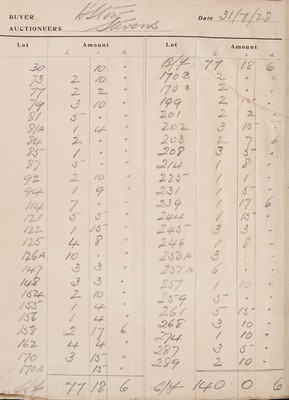 BUYER
AUCTIONEERS Stevens Date 31/7/28
Lot Amount Lot Amount
£ s d £ s d
30 10 " B/f 77 18 6
73 2 10 " 170B 2 " "
77 2 2 " 170C 2 " "
79 3 10 " 199 2 10 "
81 5 " " 201 2 2 "
81A 1 4 " 202 3 15 "
84 2 " " 203 2 7 6
85 1 " " 208 3 5 "
87 5 " " 214 1 8 "
92 2 10 " 225 1 1 "
94 1 9 " 231 1 5 "
114 7 " " 239 1 17 6
121 5 5 " 244 1 15 "
122 1 15 " 245 3 3 "
125 4 8 " 246 1 8 "
126A 10 " " 250A 3 "
147 3 3 " 251A 6 "
148 3 3 " 257 1 10 "
154 2 10 " 259 5 " "
155 1 4 " 261 5 15 "
156 1 4 " 268 3 10 "
158 2 17 6 274 1 10 "
162 4 4 " 287 3 5 "
170 3 15 " 289 2 10 "
170A 15 "
C/f 77 18 6 C/f 140 0 6